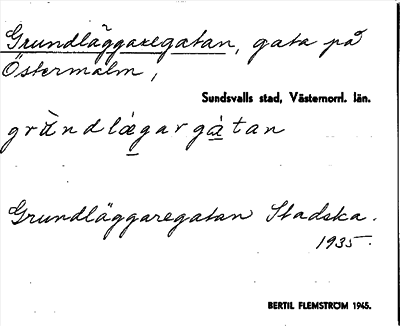 Grundläggaregatan, gata på
Östermalm,
Sundsvalls stad, Västernorrl. län.
grùndlægargátan
Grundläggaregatan Stadska.
1935.
BERTIL FLEMSTRÖM 1965.